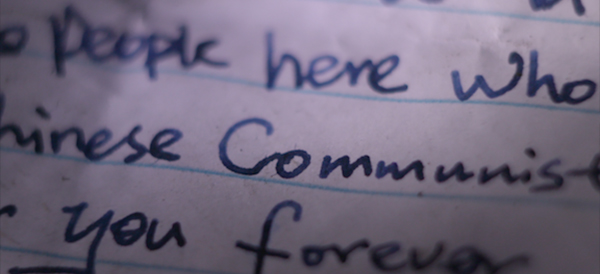 o people here who
hinese Communist
you forever